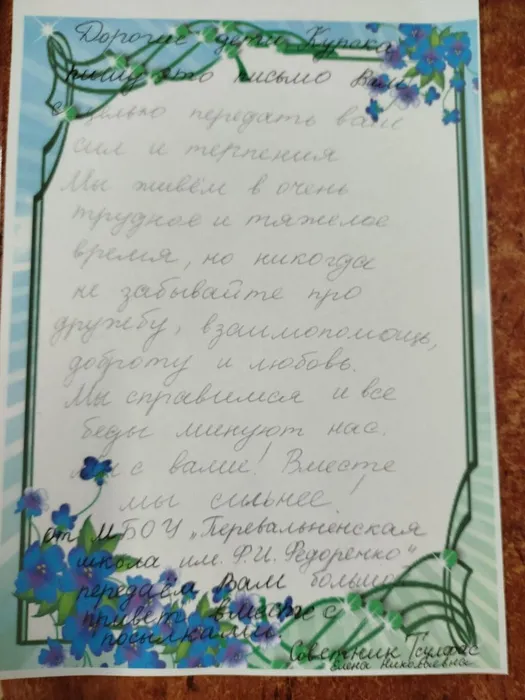 Дорогие дети Курска
пишу это письмо Вам,
с целью передать вам
сил и терпения
Мы живём в очень
трудное и тяжелое
время, но никогда
не забывайте про
дружбу, взаимопомощь,
доброту и любовь.
Мы справимся и все
беды минуют нас.
с вами! Вместе
мы сильнее!
от МБОУ „Перевальненская
школа им. Ф.И. Федоренко"
передаём Вам большой
привет вместе с
посылками.
Советник
Елена Николаевна